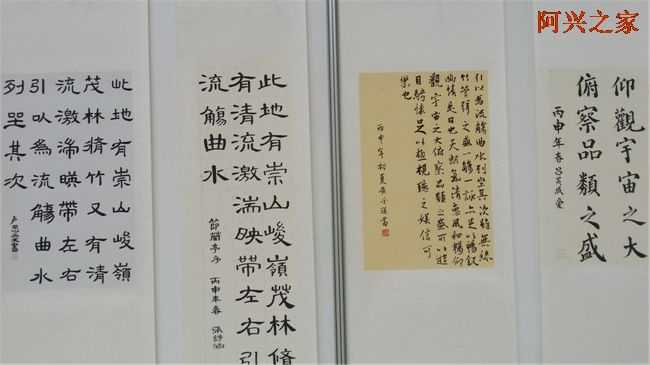 阿兴之家
此地有崇山峻嶺
茂林脩竹又有清
流激湍暎帶左右
引以為流觴曲水
列坐其次
此地有崇山峻嶺茂林脩
有清流激湍映帶左右引
流觴曲水
節蘭亭序 丙申年春 張
引以為流觴曲水列坐其次雖無絲
竹管弦之盛一觴一詠亦足以暢叙
幽情是日也天朗氣清惠風和暢仰
觀宇宙之大俯察品類之盛所以遊
目騁懷足以極視聽之娱信可
樂也
丙申年初夏 書
仰觀宇宙之大
俯察品類之盛
丙申年春